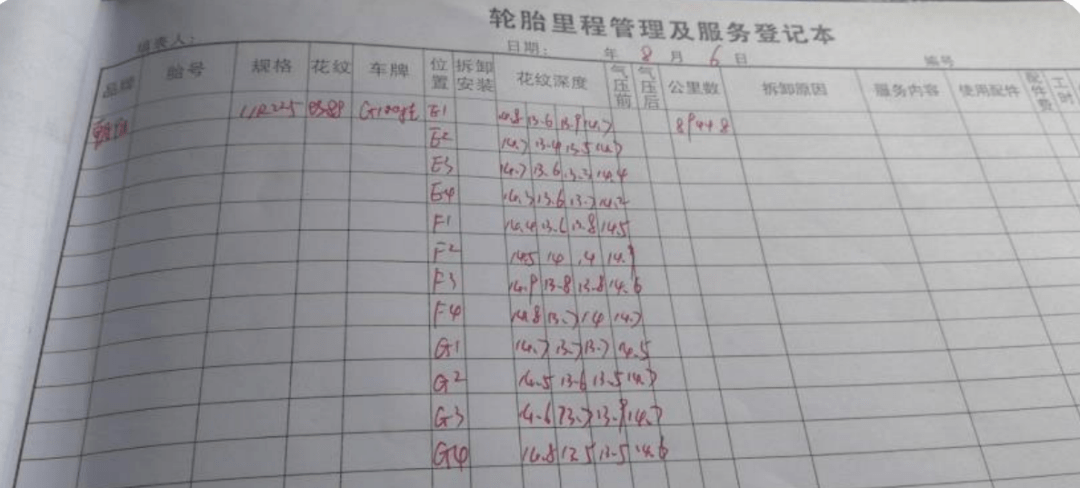 轮胎里程管理及服务登记本
填表人： 日期： 年 8 月 6 日 编号
品牌 胎号 规格 花纹 车牌 位置 拆卸安装 花纹深度 气压前 气压后 公里数 拆卸原因 服务内容 使用配件 配件费 工时
11R225 E1 13.6 14.7
E2 14.7 13.4 13.5 14.7
E3 14.7 13.6 13.3 14.4
E4 14.3 13.6 13.7 14.2
F1 14.4 13.6 13.8 14.5
F2 14.5 14
F3 14.9 13.8 13.8 14.6
F4 14.8 13.7 14 14.7
G1 14.7 13.7 13.7 14.5
G2 14.5 13.6 13.5 14.7
G3 14.6 13.7 13.9 14.7
G4 14.8 12.5 13.5 14.6